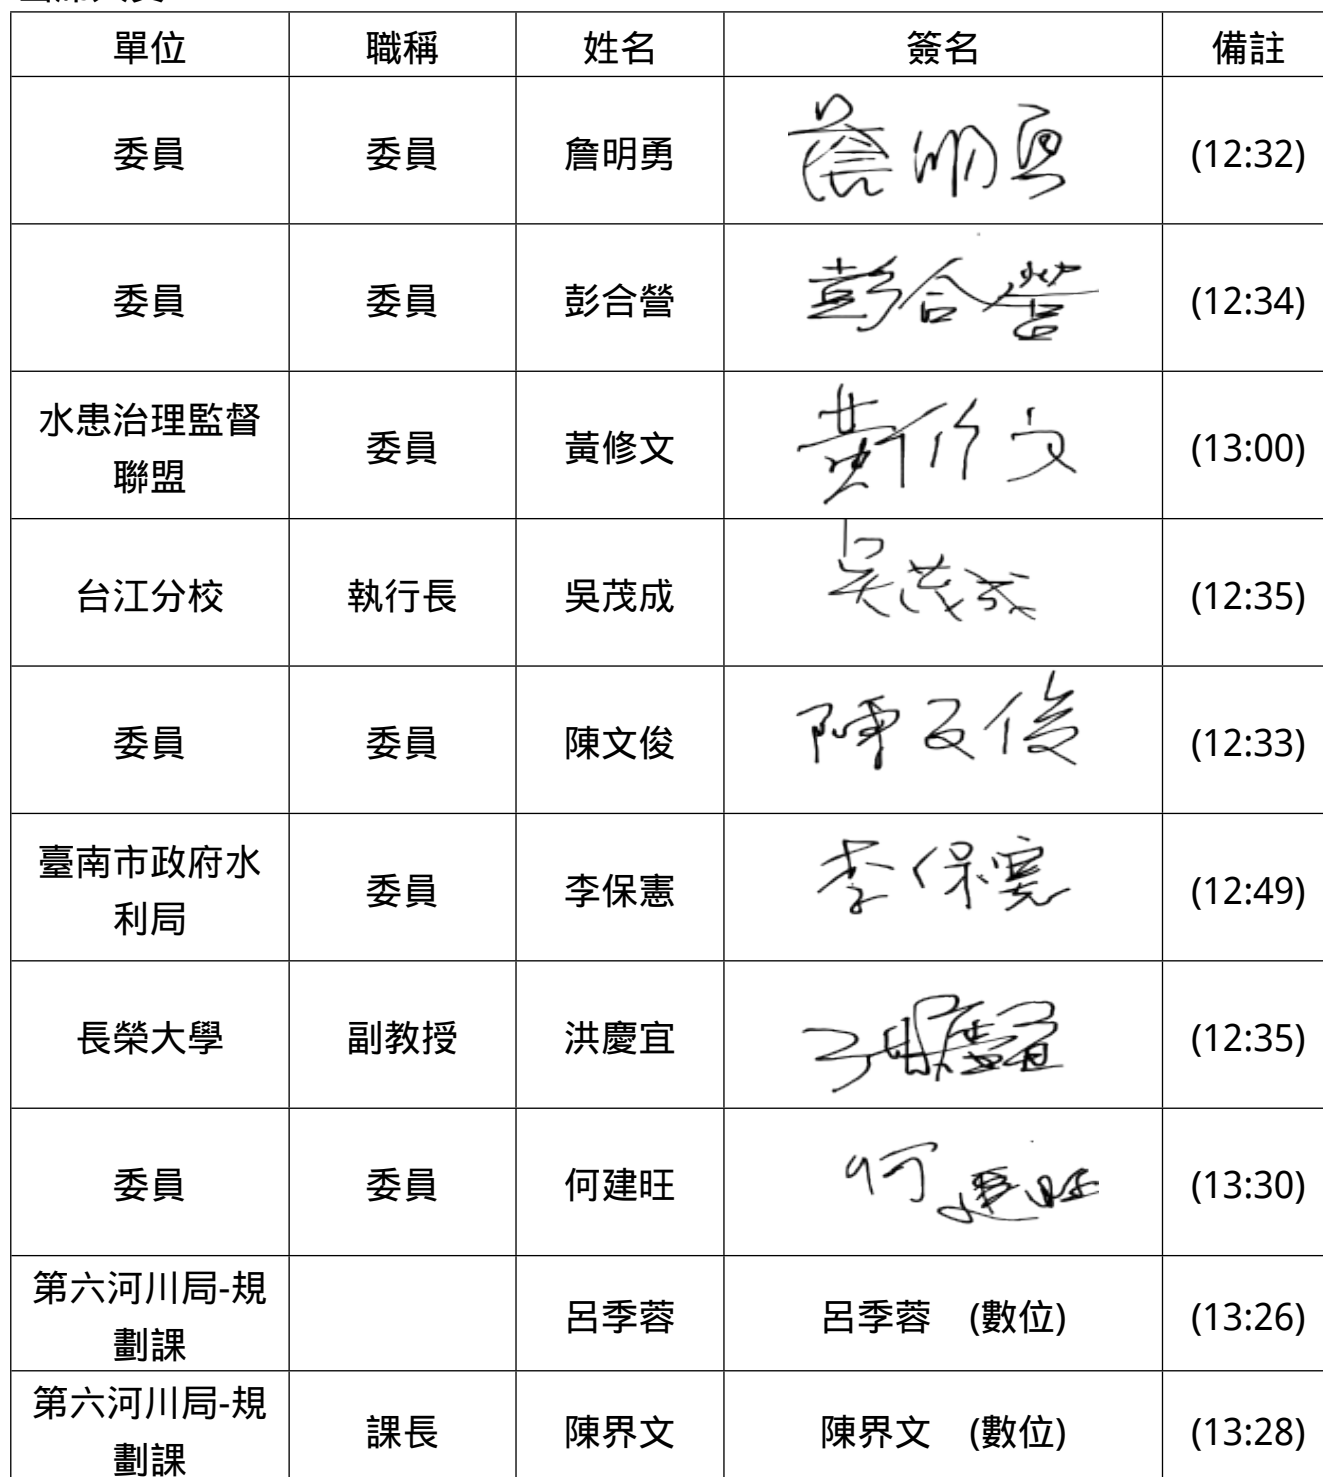 單位 職稱 姓名 簽名 備註
委員 委員 詹明勇 詹明勇 (12:32)
委員 委員 彭合營 彭合營 (12:34)
水患治理監督
聯盟 委員 黃修文 黃修文 (13:00)
台江分校 執行長 吳茂成 吳茂成 (12:35)
委員 委員 陳文俊 陳文俊 (12:33)
臺南市政府水
利局 委員 李保憲 李保憲 (12:49)
長榮大學 副教授 洪慶宜 洪慶宜 (12:35)
委員 委員 何建旺 何建旺 (13:30)
第六河川局-規
劃課 呂季蓉 呂季蓉 (數位) (13:26)
第六河川局-規
劃課 課長 陳界文 陳界文 (數位) (13:28)